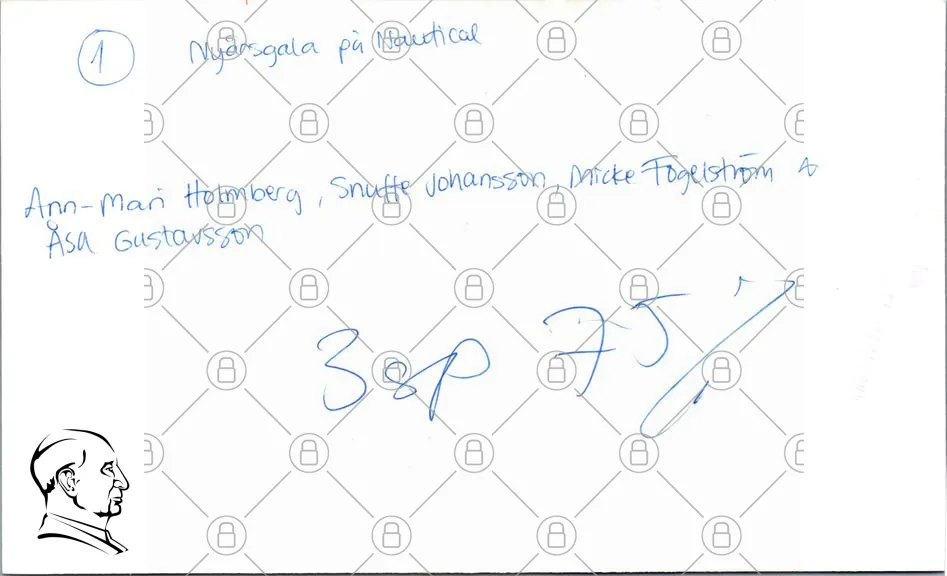 1 Nyårsgala på Nautical
Ann-Mari Holmberg, Snuffe Johansson, Micke Fogelström &
Åsa Gustavsson
3 sp 75 %